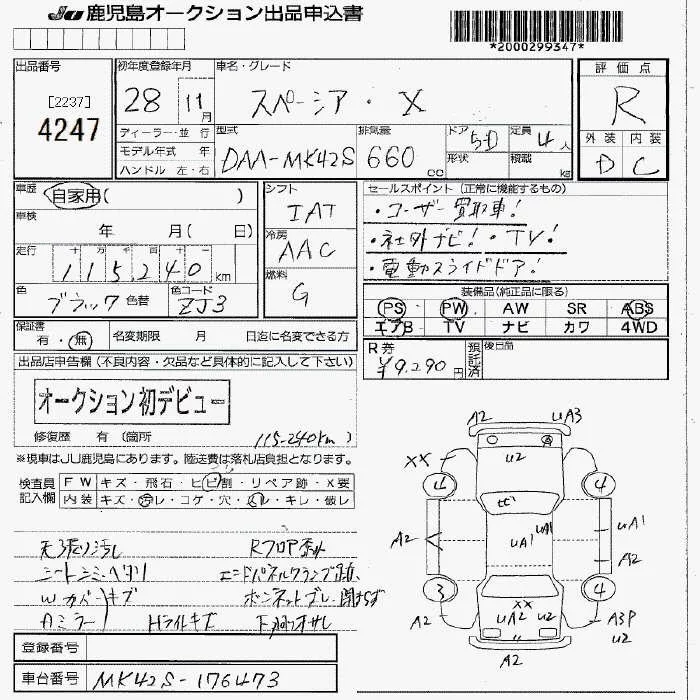 JU 鹿児島オークション出品申込書
*2000299347*
出品番号
[2237]
4247
初年度登録年月
28 11月
ディーラー・並行
モデル年式 年
ハンドル 左・右
車名・グレード
スペーシア・X
型式
DAA-MK42S
排気量
660 cc
ドア
5D
形状
定員
4人
積載
kg
評価点
R
外装 内装
D C
車歴
自家用( )
車検
年 月( 日)
走行
十 万 千 百 十
115,240 km
色
ブラック 色替
色コード
ZJ3
シフト
IAT
冷房
AAC
燃料
G
セールスポイント(正常に機能するもの)
・ユーザー買取車!
・社外ナビ!・TV!
・電動スライドドア!
装備品(純正品に限る)
PS PW AW SR ABS
エアB TV ナビ カワ 4WD
保証書
有・無
名変期限 月 日迄に名変できる方
R券
¥9,290円
預託済
後日品
出品店申告欄(不良内容・欠品など具体的に記入して下さい)
オークション初デビュー
修復歴 有(箇所 115-240km)
※現車はJU鹿児島にあります。陸送費は落札店負担となります。
検査員記入欄
FW キズ・飛石・ヒビ割・リペア跡・X要
内装 キズ・汚レ・コゲ・穴・スレ・キレ・破レ
天張り汚レ Rフロア
シートシミ・ヘタリ エンドパネルクランプ
Wカバーキズ ボンネットズレ・開けず
Aミラー Hライトキズ 下廻りオサレ
A2 UA3
U2
XX
4 4
ヒビ
UA1
UA1 UA1
A2
A2
3 4
XX
A2 UA2 U2 A3P
U2
A2
登録番号
車台番号 MK42S-176473